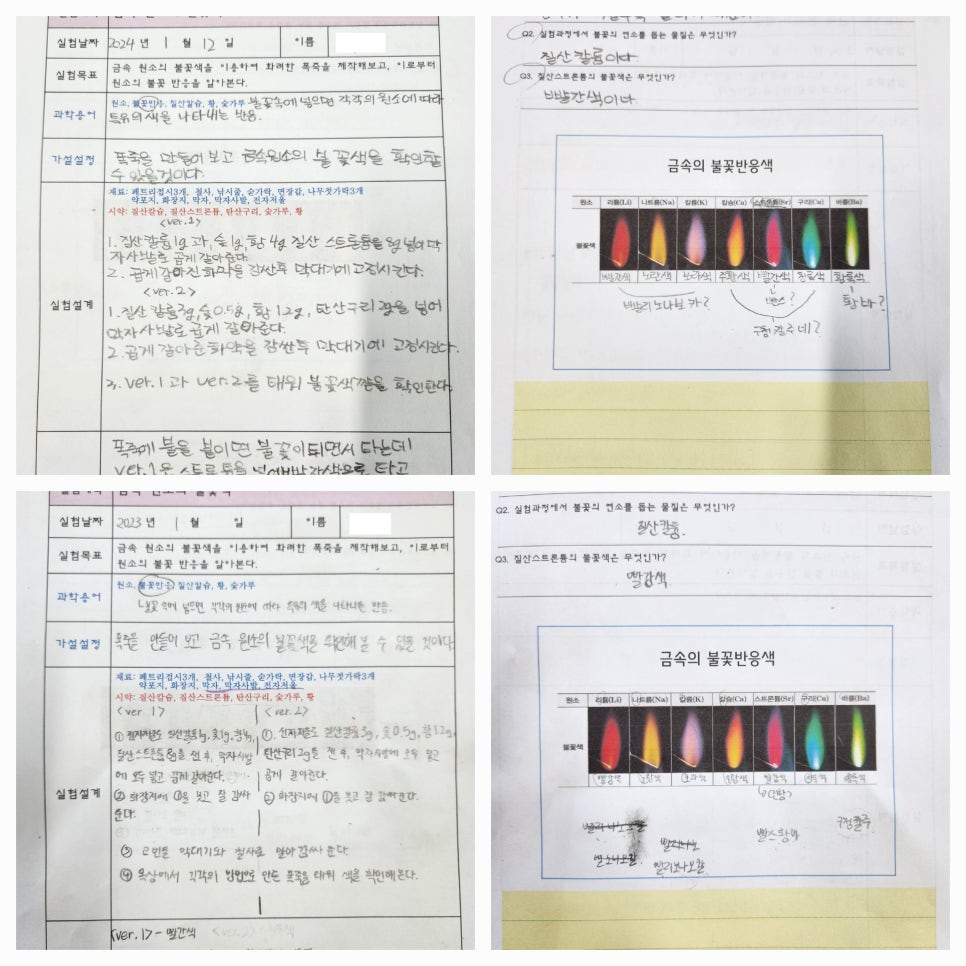 실험날짜 2024 년 1 월 12 일 이름
실험목표 금속 원소의 불꽃색을 이용하여 화려한 폭죽을 제작해보고, 이로부터
원소의 불꽃 반응을 알아본다.
과학용어 원소, 불꽃반응, 질산칼슘, 황, 숯가루 불꽃속에 넣으면 각각의 원소에 따라
특유의 색을 나타내는 반응.
가설설정 폭죽을 만들어 보고 금속원소의 불꽃색을 확인할
수 있을것이다.
재료: 페트리접시3개, 철사, 낚시줄, 숟가락, 면장갑, 나무젓가락3개
약포지, 화장지, 막자, 막자사발, 전자저울
시약: 질산칼륨, 질산스트론튬, 탄산구리, 숯가루, 황
<ver.1>
1. 질산칼륨1g과, 숯1g, 황 4g 질산 스트론튬을 8g 넣어 막
자사발로 곱게 갈아준다.
2. 곱게 갈아진 화약을 감싼후 막대기에 고정시킨다.
<ver.2>
실험설계
1. 질산 칼륨 숯0.5g, 황 1.2g, 탄산구리 넣어
막자사발로 곱게 갈아준다.
2. 곱게 갈아준 화약을 감싼후 막대기에 고정시킨다.
3. ver.1과 ver.2를 태워 불꽃색깔을 확인한다.
폭죽에 불을 붙이면 불꽃이 튀면서 타는데
Q2. 실험과정에서 불꽃의 연소를 돕는 물질은 무엇인가?
질산 칼륨이다.
Q3. 질산스트론튬의 불꽃색은 무엇인가?
빨간색이다.
금속의 불꽃반응색
원소 리튬(Li) 나트륨(Na) 칼륨(K) 칼슘(Ca) 스트론튬(Sr) 구리(Cu) 바륨(Ba)
불꽃색
빨간색 노란색 보라색 주황색 빨간색 청록색 황록색
빨리 노나보 카? 빨스? 황바?
구청 칼주네?
실험날짜 2023 년 1 월 일 이름
실험목표 금속 원소의 불꽃색을 이용하여 화려한 폭죽을 제작해보고, 이로부터
원소의 불꽃 반응을 알아본다.
과학용어 원소, 불꽃반응, 질산칼슘, 황, 숯가루
불꽃 속에 넣으면 각각의 원소에 따라 특유의 색을 나타내는 반응.
가설설정 폭죽을 만들어 보고 금속 원소의 불꽃색을 확인해 볼 수 있을 것이다.
재료: 페트리접시3개, 철사, 낚시줄, 숟가락, 면장갑, 나무젓가락3개
약포지, 화장지, 막자, 막자사발, 전자저울
시약: 질산칼륨, 질산스트론튬, 탄산구리, 숯가루, 황
<ver 1> <ver.2>
① 전자저울로 질산칼륨1g, 숯1g, 황4g, ①. 전자저울로 질산칼륨 숯0.5g, 황1.2g,
질산스트론튬8g을 잰 후, 막자사발 탄산구리 2g를 잰 후, 막자사발에 모두 넣고
에 모두 넣고 곱게 갈아준다. 곱게 갈아준다.
실험설계
② 화장지에 ①을 넣고 잘 감싸 ② 화장지에 ①을 넣고 잘 감싸준다.
준다.
③ 막대기와 철사로 말아 감싸 준다.
④ 옥상에서 각각의 방법으로 만든 폭죽을 태워 색을 확인해본다.
<ver.1> - 빨간색
Q2. 실험과정에서 불꽃의 연소를 돕는 물질은 무엇인가?
질산칼륨.
Q3. 질산스트론튬의 불꽃색은 무엇인가?
빨강색
금속의 불꽃반응색
원소 리튬(Li) 나트륨(Na) 칼륨(K) 칼슘(Ca) 스트론튬(Sr) 구리(Cu) 바륨(Ba)
불꽃색
빨강색 노랑색 보라색 주황색 빨강색 청록색 황록색
(진함)
빨리나노 빨스황바 구청칼주
빨리노나보칼